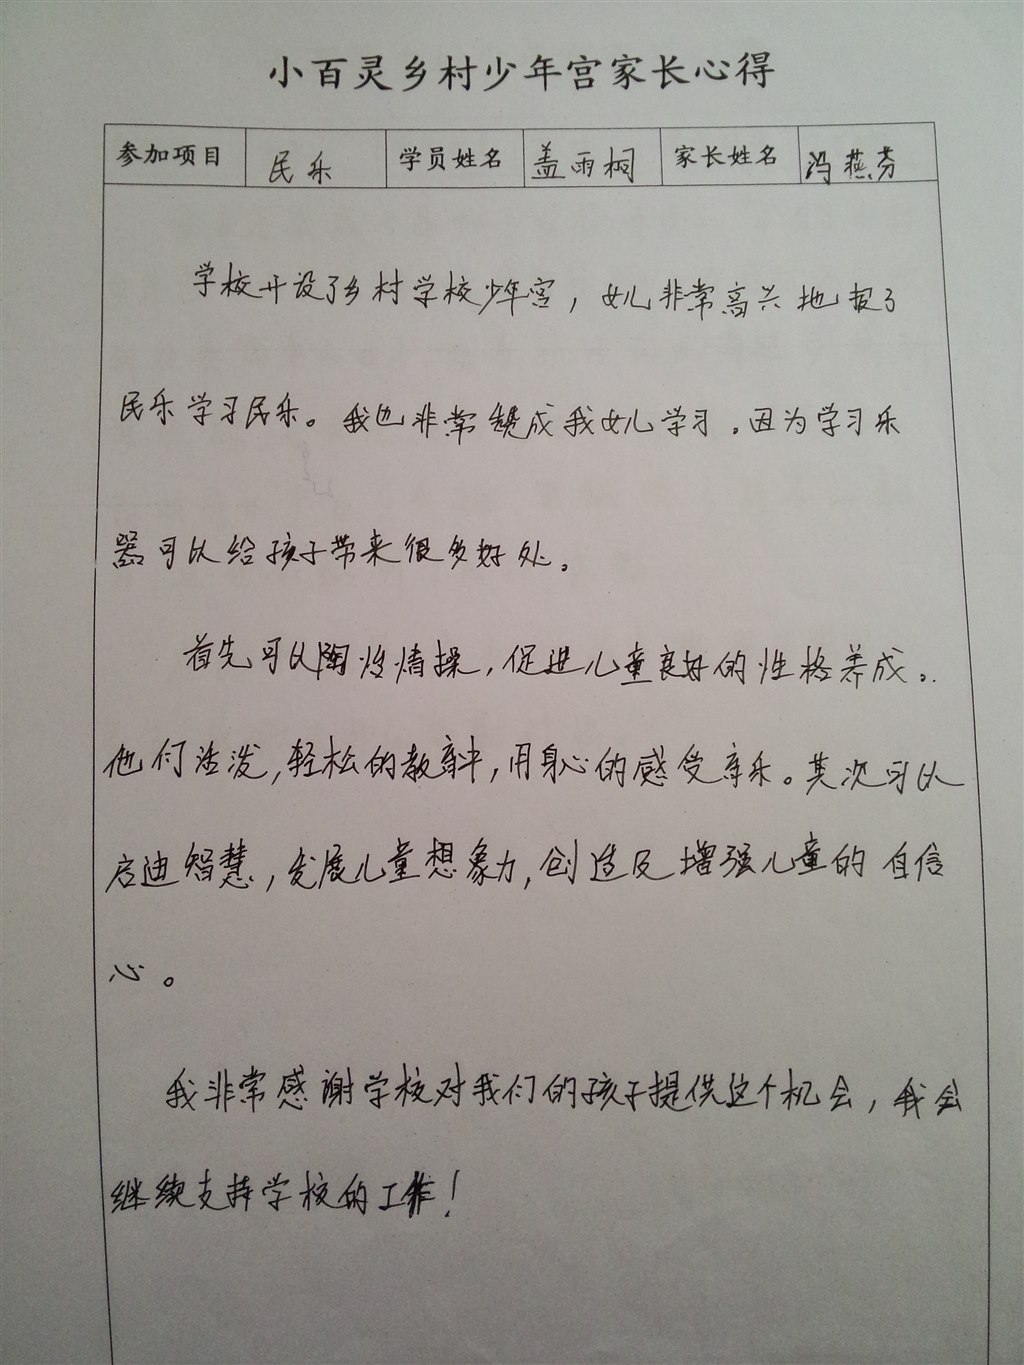 小百灵乡村少年宫家长心得
参加项目 民乐 学员姓名 盖雨桐 家长姓名 冯燕芬
学校开设了乡村学校少年宫，女儿非常高兴地报了
民乐学习民乐。我也非常赞成我女儿学习。因为学习乐
器可以给孩子带来很多好处。
首先可以陶冶情操，促进儿童良好的性格养成。
他们活泼，轻松的教育中，用身心的感受音乐。其次可以
启迪智慧，发展儿童想象力，创造及增强儿童的自信
心。
我非常感谢学校对我们的孩子提供这个机会，我会
继续支持学校的工作！